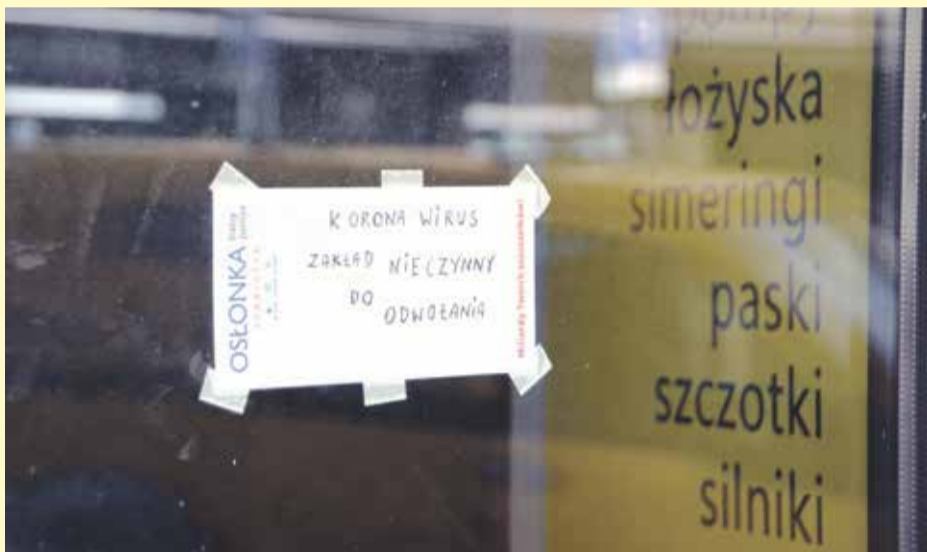 KORONA WIRUS
ZAKŁAD NIECZYNNY
DO ODWOŁANIA
OSŁONKA
łożyska
simeringi
paski
szczotki
silniki